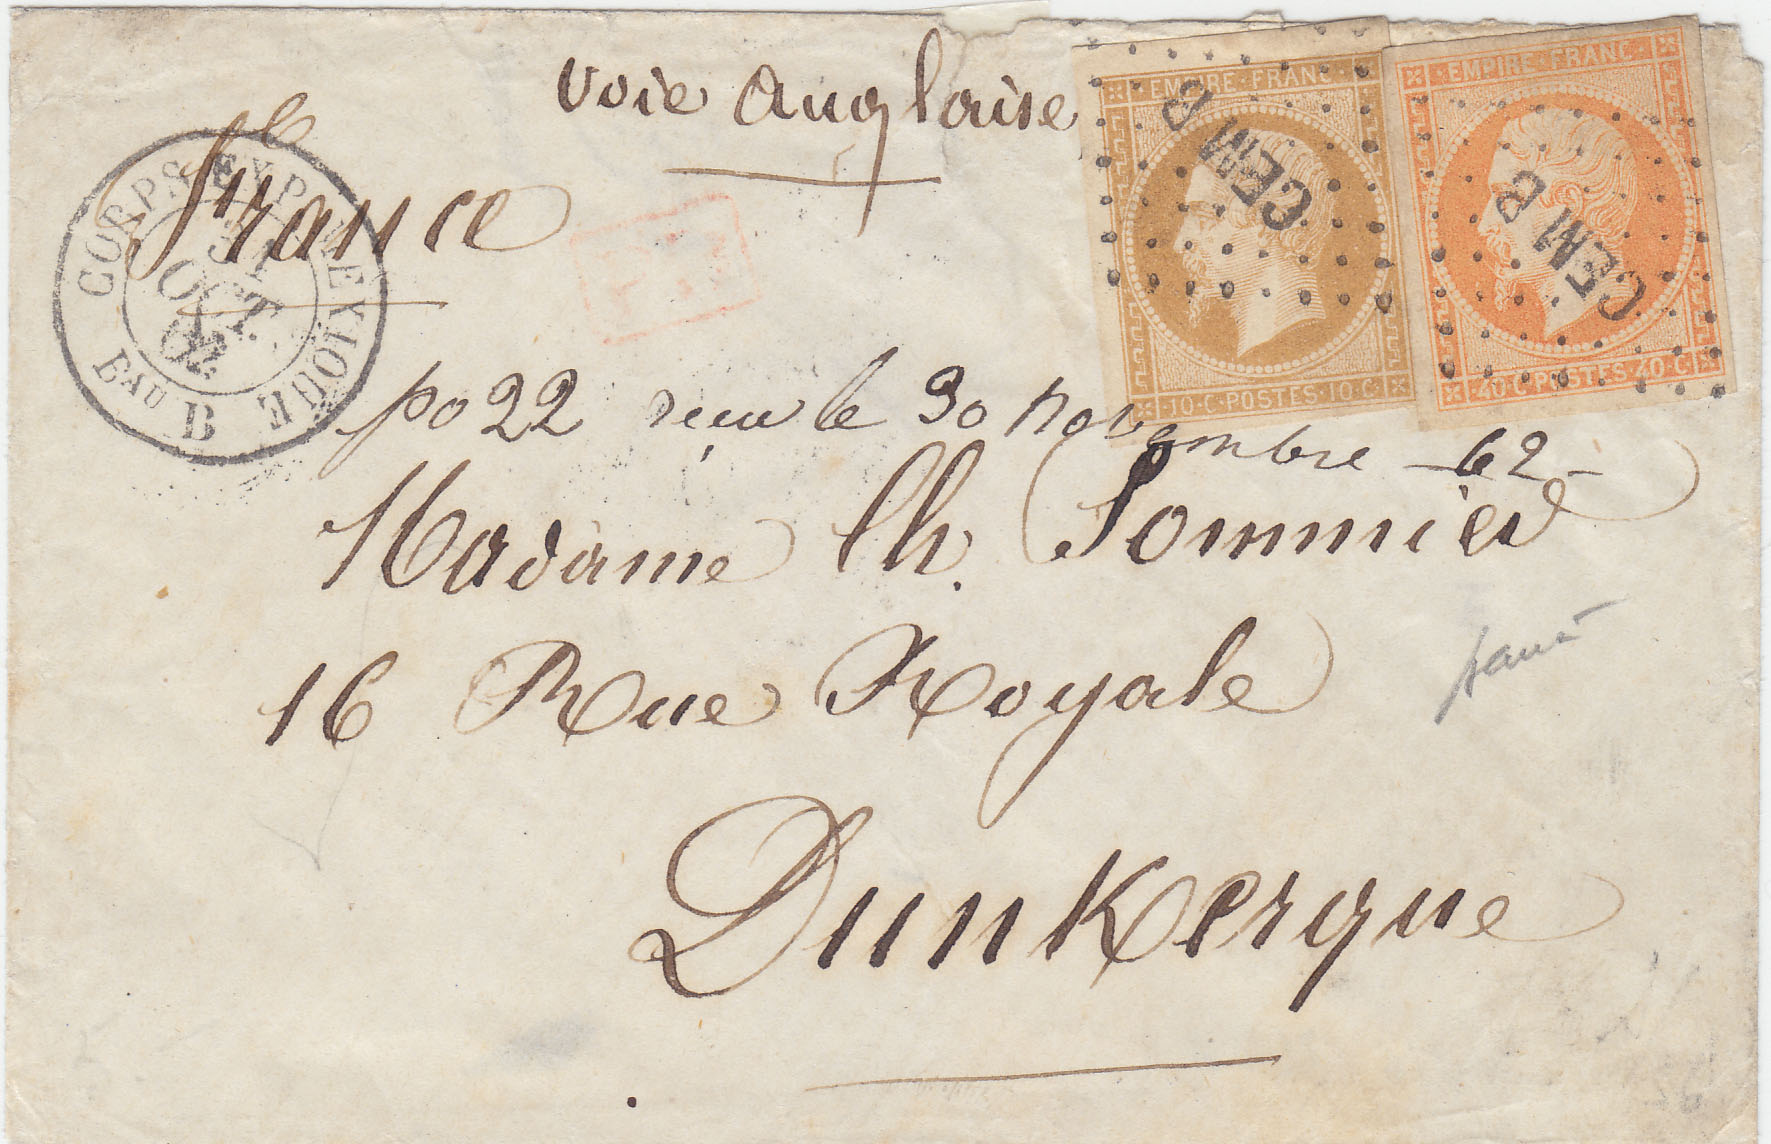 voie anglaise
france
CORPS EXP. MEXIQUE
31
OCT.
62
Bau B
EMPIRE · FRANC ·
CEM B
10 · C · POSTES · 10 · C
EMPIRE · FRANC ·
CEM B
40 · C · POSTES · 40 · C
po 22 reçu le 30 novembre - 62 -
Madame Ch. Sommier
16 Rue Royale
Dunkerque